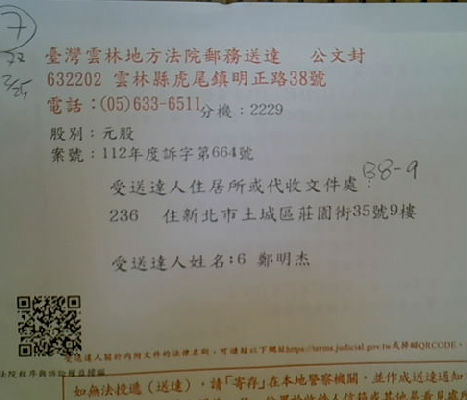 7
臺灣雲林地方法院郵務送達 公文封
632202 雲林縣虎尾鎮明正路38號
電話：(05)633-6511分機：2229
股別：元股
案號：112年度訴字第664號
B8-9
受送達人住居所或代收文件處：
236 住新北市土城區莊園街35號9樓
受送達人姓名：6 鄭明杰
受送達人關於內附文件的法律名詞，可連結以下網址https://terms.judicial.gov.tw或掃描QRCODE。
如無法投遞（送達），請「寄存」在本地警察機關，並作成送達通知